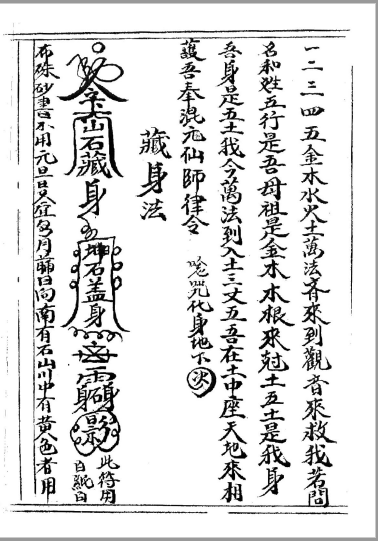 一二三四五金木水火土萬法齊來到觀音來救我若問
名和姓五行是吾母祖是金木水根來尅土五土是我身
吾身是五土我今萬法到入土三丈五吾在土中座天地來相
護吾奉混元仙師律令 唸咒化身地下
藏身法
山石藏身 石蓋身
此符用
白紙白
布硃砂書不用元旦日 每月 日向南有石山川中有黃色者用